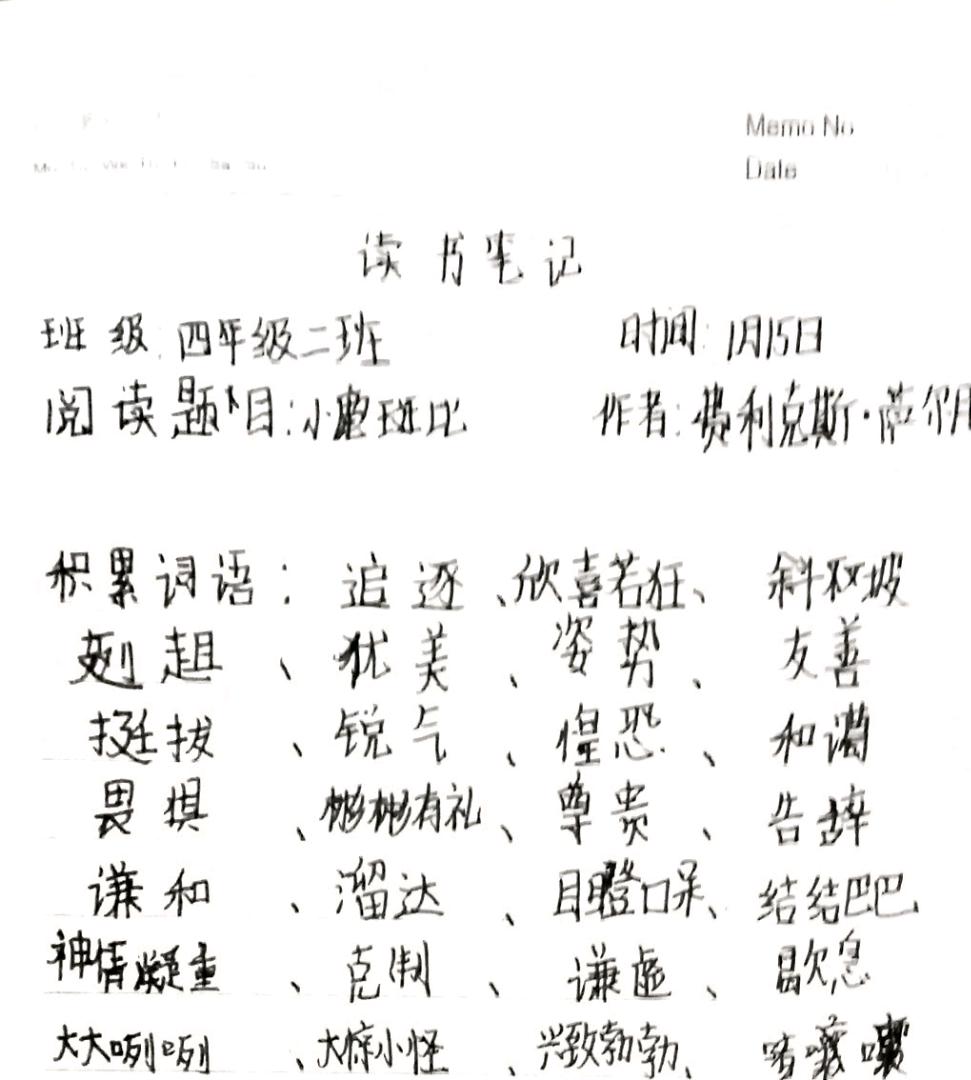 Memo No
Date
读书笔记
班级:四年级二班 时间:1月15日
阅读题目:小鹿班比 作者:费利克斯·萨尔
积累词语:追逐、欣喜若狂、斜坡
趔趄、优美、姿势、友善
挺拔、锐气、惶恐、和蔼
畏惧、彬彬有礼、尊贵、告辞
谦和、溜达、目瞪口呆、结结巴巴
神情凝重、克制、谦虚、歇息
大大咧咧、大惊小怪、兴致勃勃、